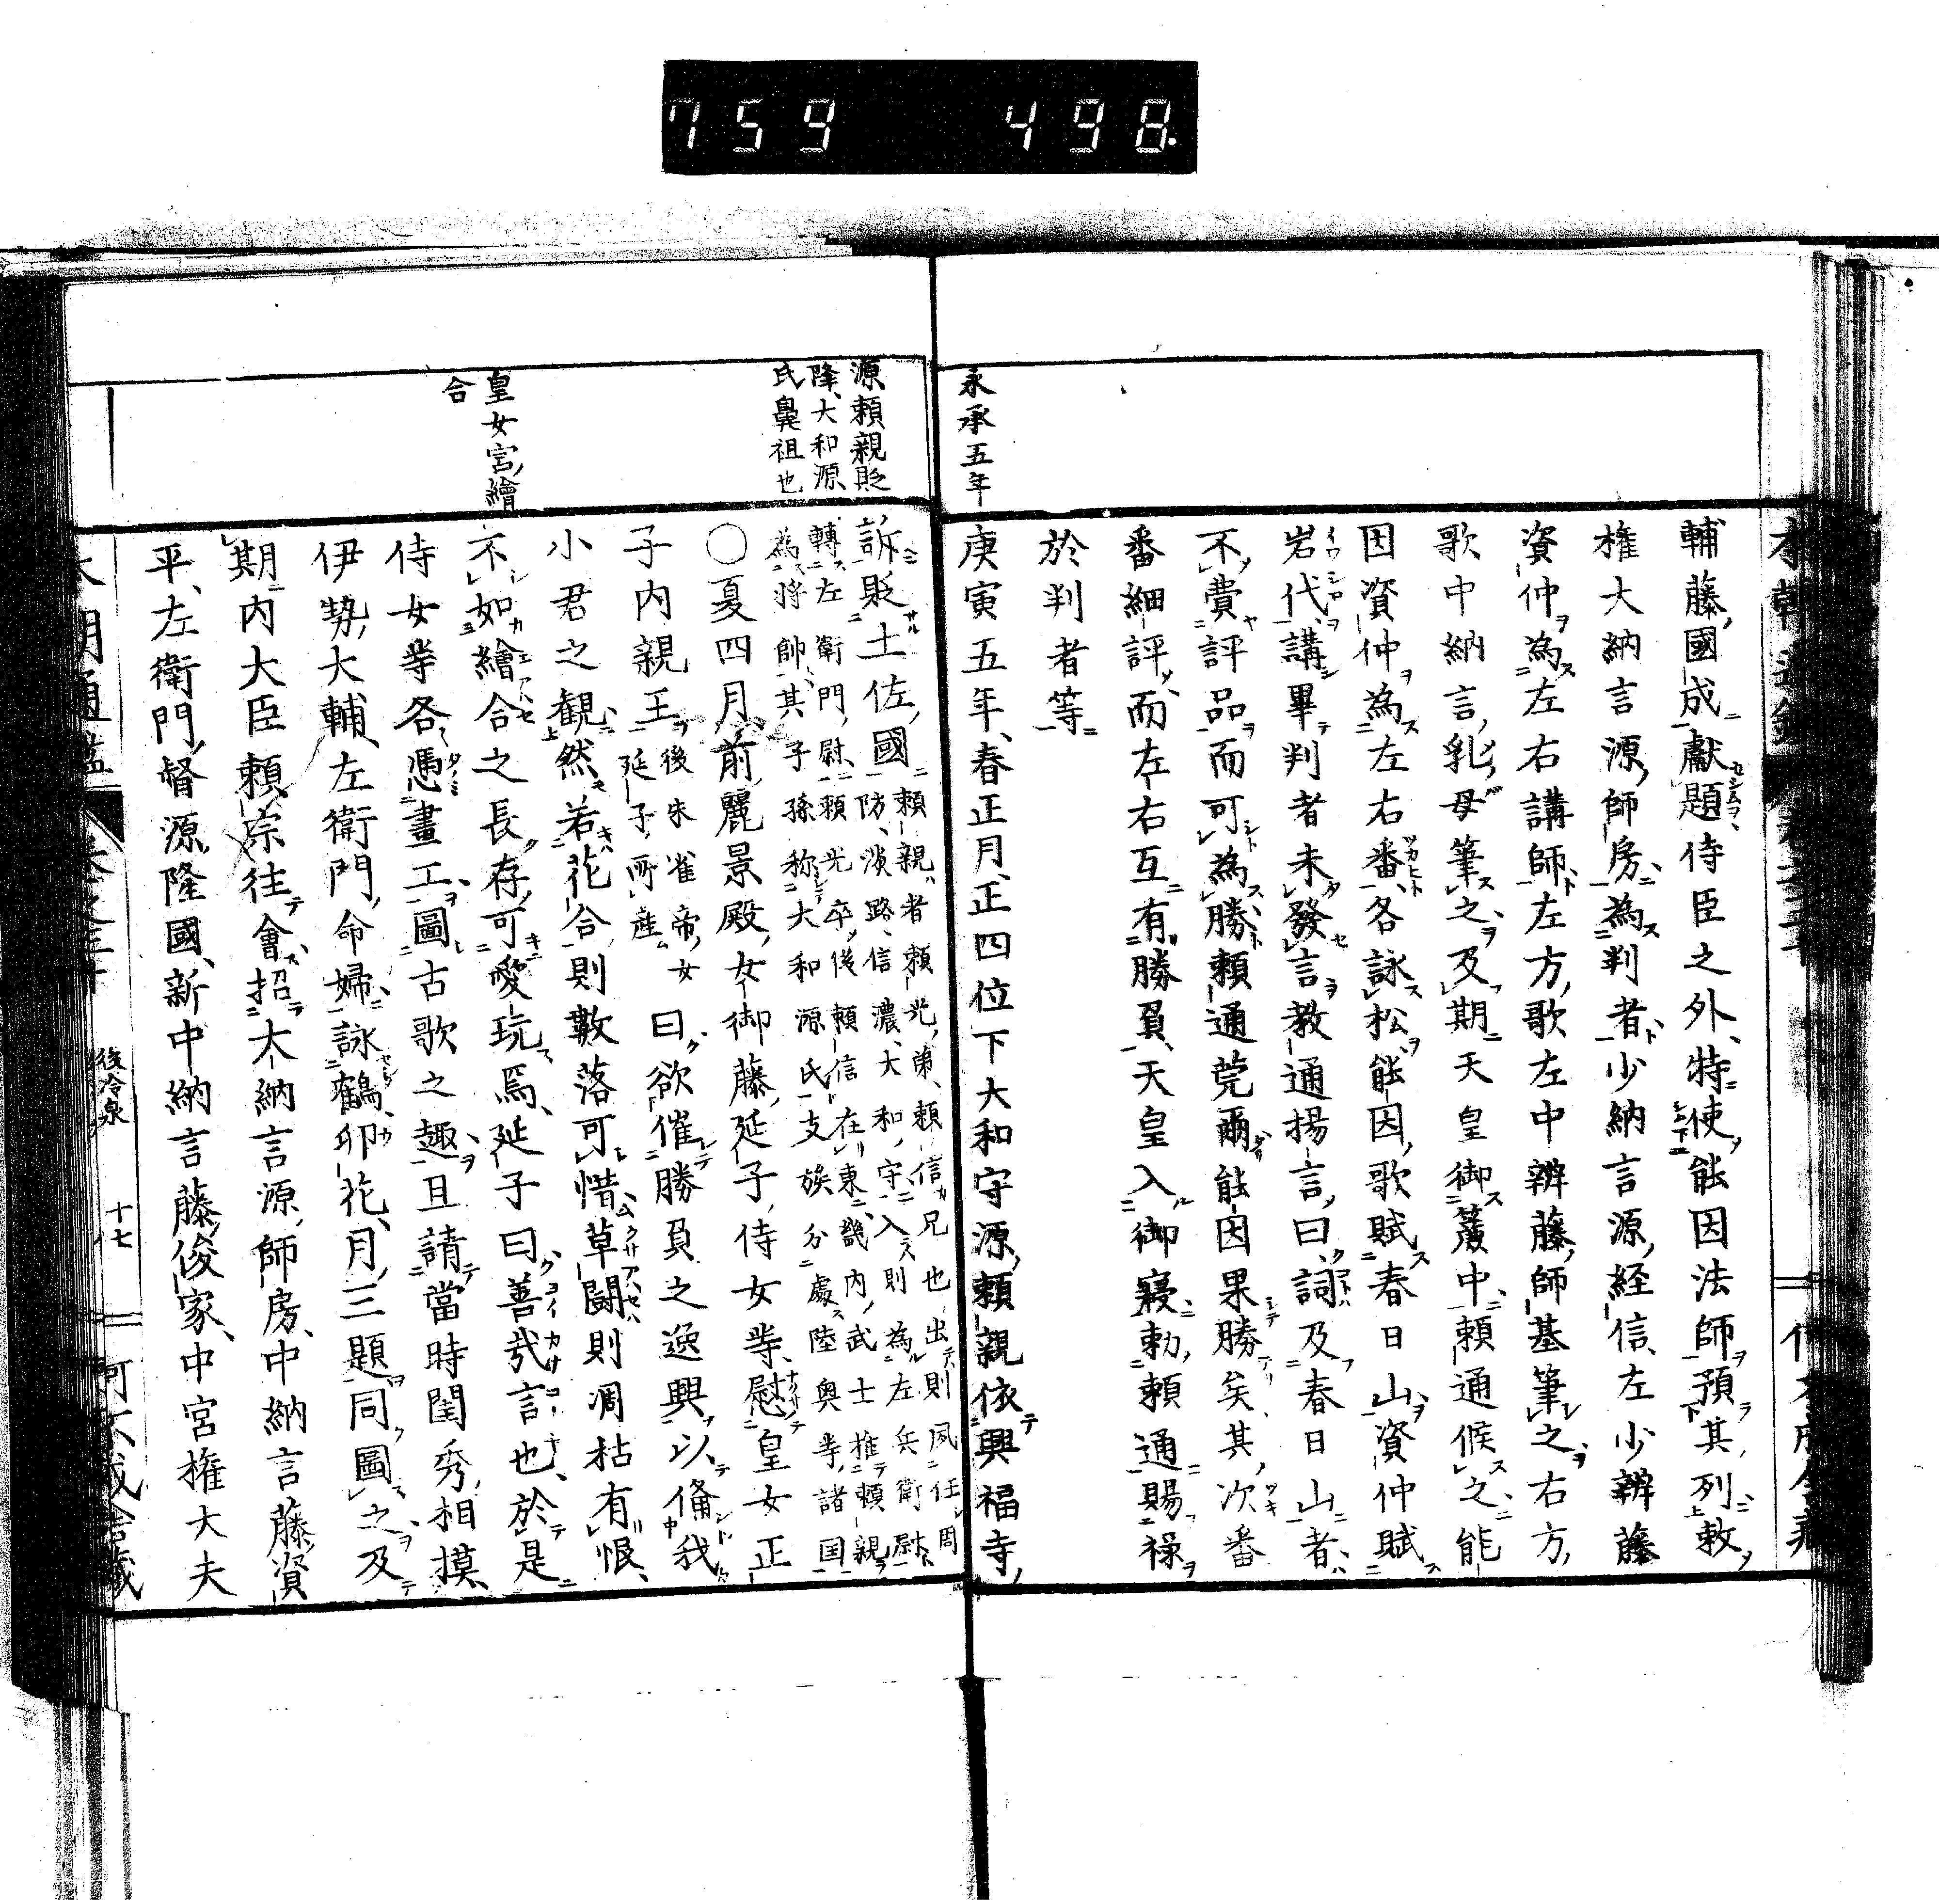 759 498.
輔藤國成獻題侍臣之外特使能因法師預其列敕
權大納言源師房為判者少納言源経信左少辨藤
資仲為左右講師左方歌左中辨藤師基筆之右方
歌中納言乳母筆之及期天皇御簾中頼通候之能
因資仲為左右番各詠松能因歌賦春日山資仲賦
岩代講畢判者未發言教通揚言曰詞及春日山者
不費評品而可為勝頼通莞爾能因果勝矣其次番
番細評而左右互有勝負天皇入御寢勅頼通賜祿
於判者等
永承五年
庚寅五年春正月正四位下大和守源頼親依興福寺
源頼親貶
隆大和源
氏鼻祖也
訴貶土佐國
頼親者頼光弟頼信兄也出則夙任周
防淡路信濃大和守入則為左兵衛尉
轉左衛門尉頼光卒後頼信在東畿内武士推頼親
為將帥其子孫称大和源氏支族分處陸奥等諸国
○夏四月前麗景殿女御藤延子侍女等慰皇女正
子内親王
後朱雀帝女
延子所産
曰欲催勝負之逸興以備我
小君之觀然若花合則數落可惜草闘則凋枯有恨
皇女宮繪
合
不如繪合之長存可愛玩焉延子曰善哉言也於是
侍女等各憑畫工圖古歌之趣且請當時閨秀相摸
伊勢大輔左衛門命婦詠鶴卯花月三題同圖之及
期内大臣頼宗往會招大納言源師房中納言藤資
平左衛門督源隆國新中納言藤俊家中宮権大夫
後冷泉
十七